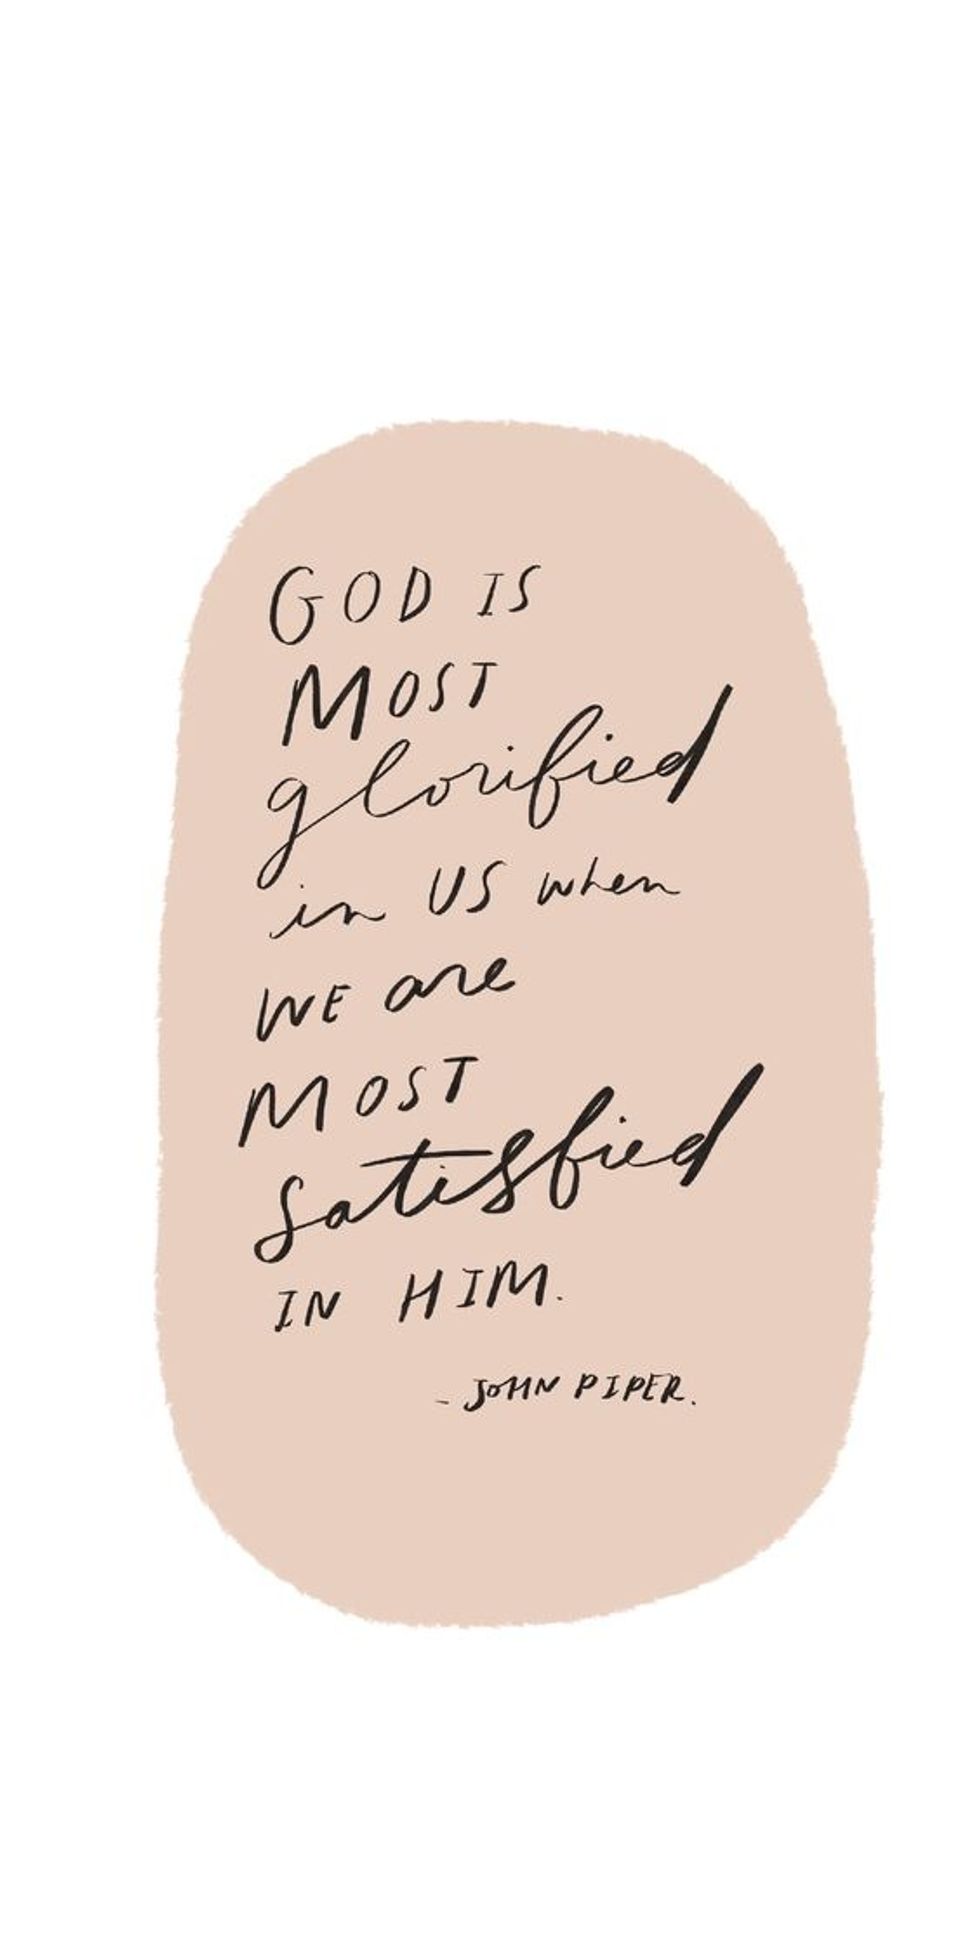 GOD IS
MOST
glorified
in US when
WE are
MOST
satisfied
IN HIM.
- JOHN PIPER.